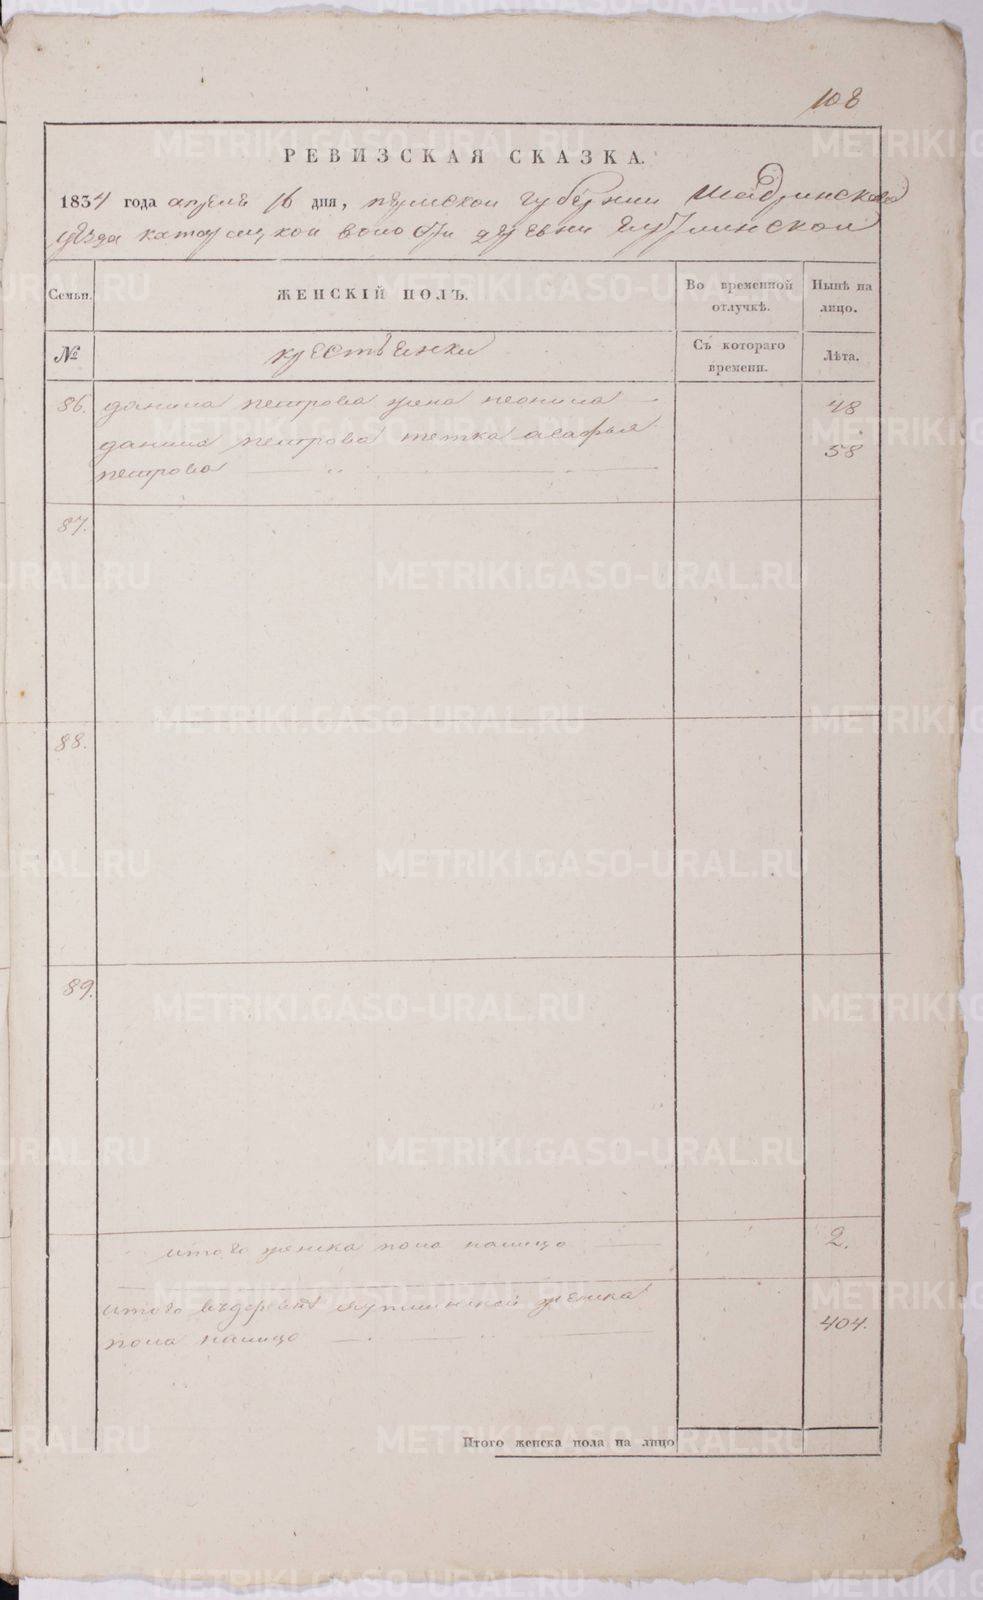 108
РЕВИЗСКАЯ СКАЗКА.
1834 года апреля 16 дня, пермской губернии Шадринскаго
уезда катайской волости деревни
Семьи. ЖЕНСКІЙ ПОЛЪ. Во временной отлучкѣ. Нынѣ на лицо.
№ крестьянки Съ котораго времени. Лѣта.
86. данила петрова жена неонила 48
данила петрова тетка агафья
петрова 58
87.
88.
89.
итого женска пола налицо 2.
итого въ деревне женска
пола налицо 404.
Итого женска пола на лицо
METRIKI.GASO-URAL.RU